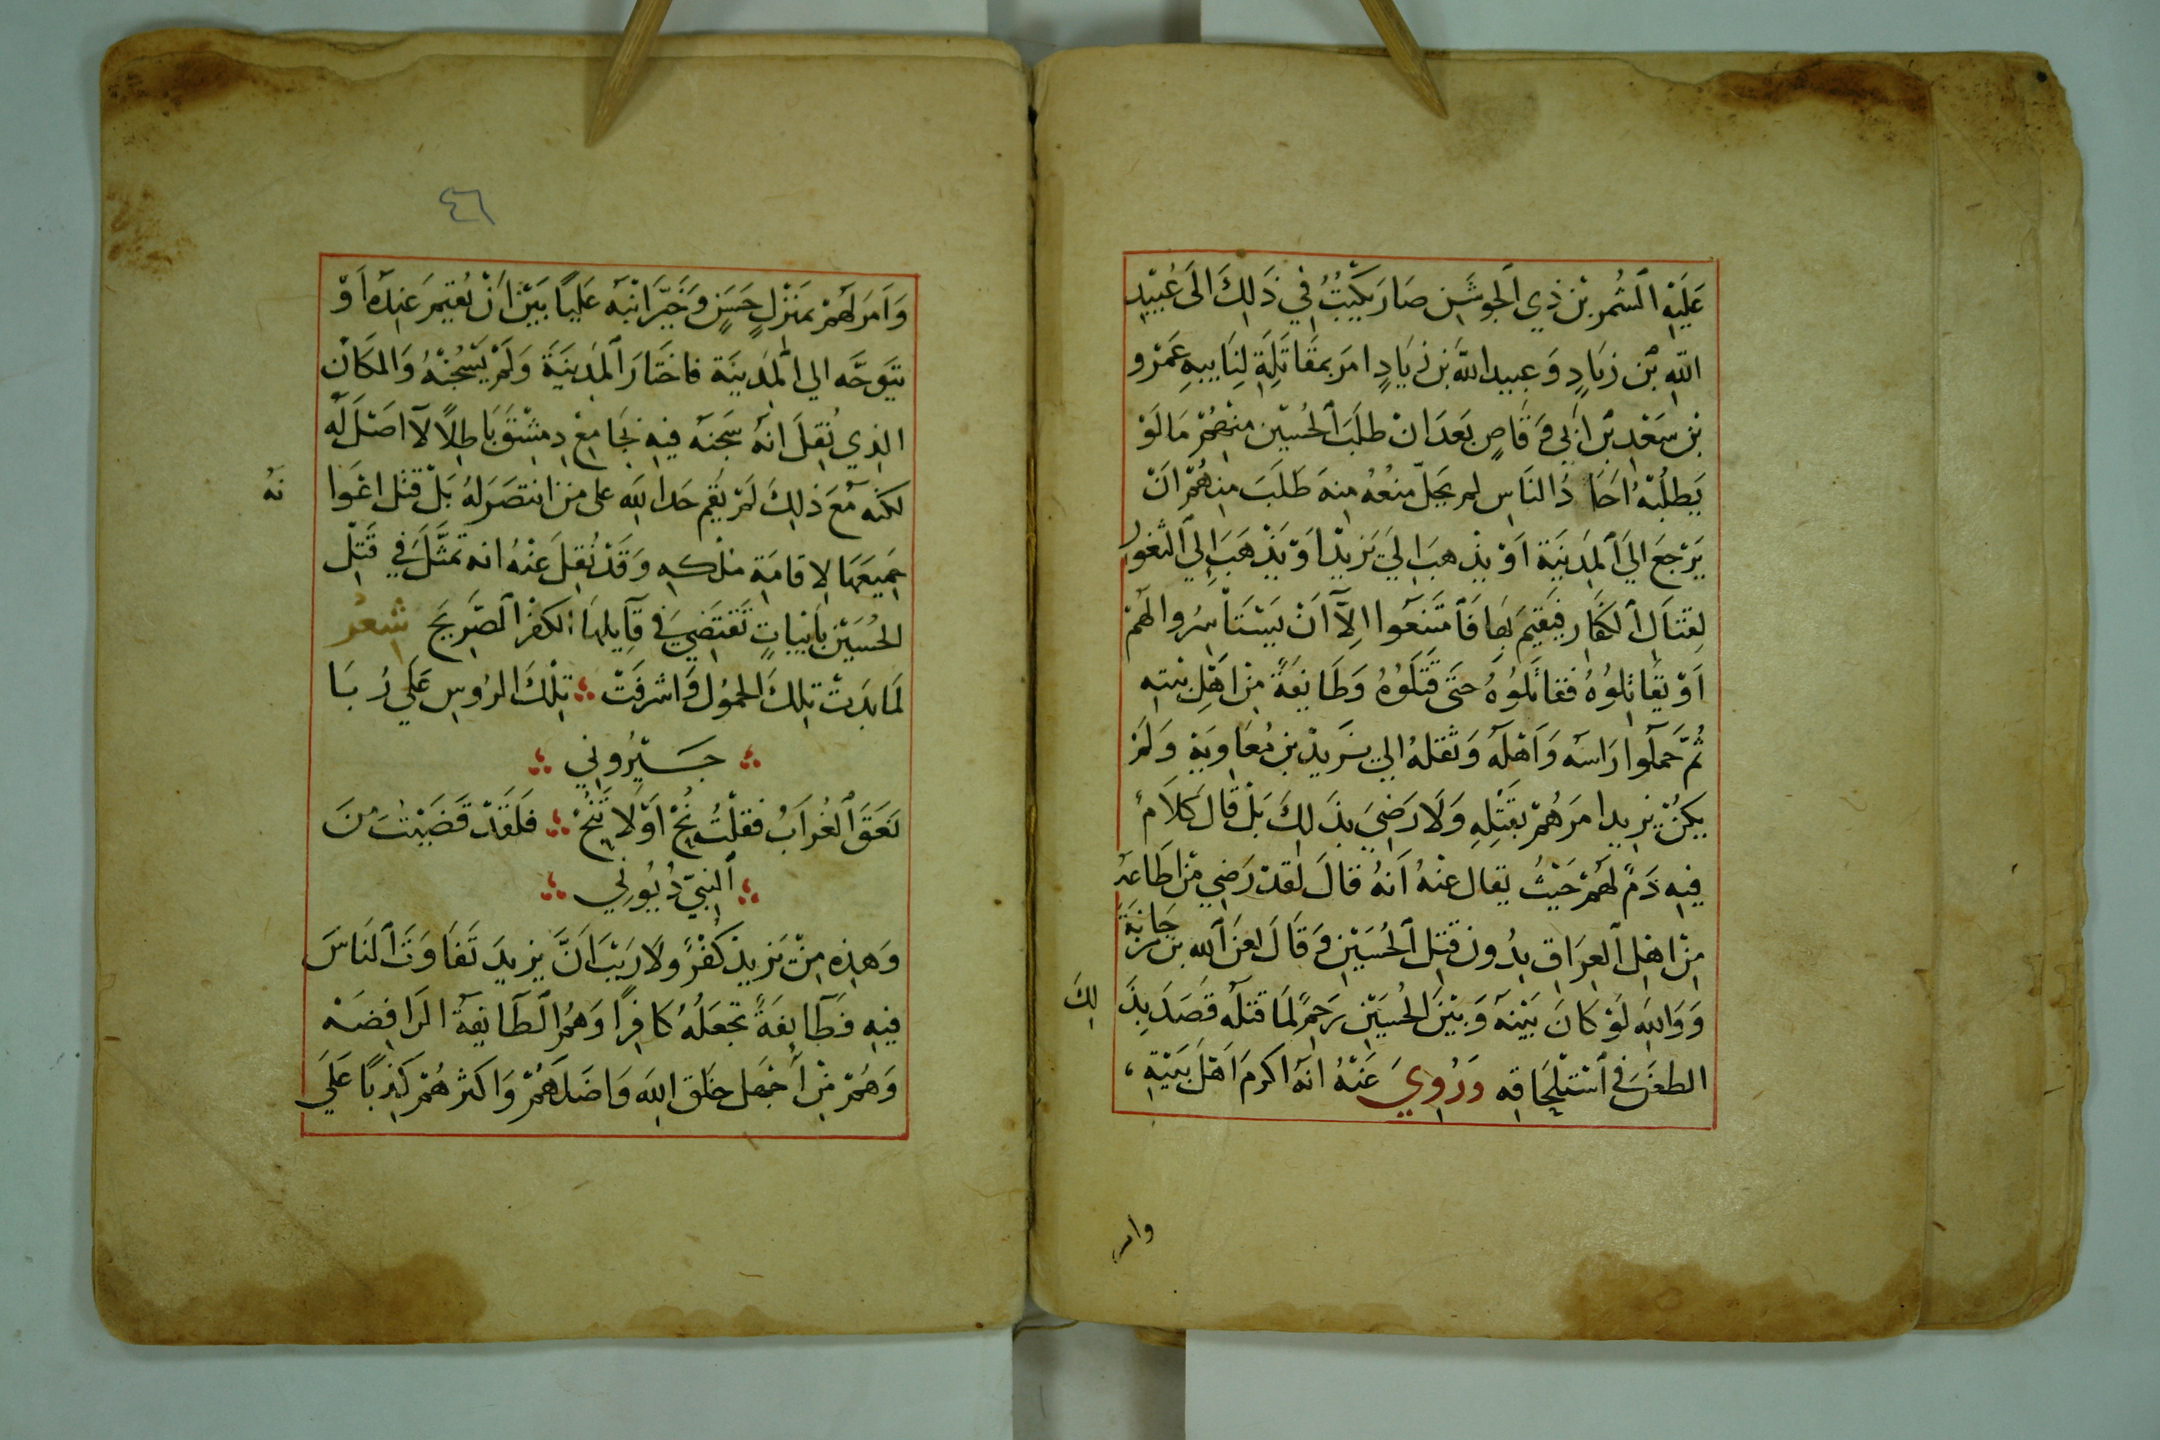 عَلَيْهِ الشمر بْن ذِي الجوشَنِ صَارَ يَكْتُبُ فِي ذَلِكَ الَى عُبَيْدِ
اللهِ بْن زيَادٍ وَعبيد الله بن زيَادٍ امَر بمقَاتَلَةِ لِنَايبِهِ عَمْرو
بْن سَعْدِ بْن ابي وَقاصٍ بَعَدَ انْ طلَبَ الحُسَيْن منهُمْ مَا لَوْ
يَطلُبُهُ احَادُ النَاسِ لم يحَلّ منعُهُ منهَ طَلَبَ منهُمْ انْ
يَرْجعَ اليَ المَدِينَةِ اوْ يذْهبَ اليَ يَزيْدَ اوْ يَذْهَبَ الِي الثغور
لِقتَالِ الكُفَّارِ فيَقيمَ بهَا فَامْتَنعَوا الِآ انْ يَسْتَاسِرُوا لهَمْ
اوْ يقَاتِلوُهُ فقاتَلوُهُ حتَى قَتَلَوُهُ وَطَايفَةً مِنْ اهْلِ بَيْتِهِ
ثُمَّ حَمَلوا رَاسَهُ وَاهْلَهُ وَثقلهُ الي يَزيدْ بن مُعَاوَيةِ وَلَمْ
يكنْ يزيد امرَهُمْ بقَتْلِهِ وَلَا رَضِيَ بذَلِكَ بَلْ قَالَ كَلَامً
فيهِ ذَمٌ لهُمْ حَيْثُ يقال عنْهُ انَهُ قالَ لقدْ رَضِي منْ اطَاعَة
مِنْ اهْل العِرَاق بدُون قتلِ الحُسَيْنِ وَقَالَ لعَنَ الله بن مرْجَانَة
وَوَاللهِ لَوْ كانَ بَيْنهَ وَبيْنَ الحُسَيْنِ رَحِمً لمَا قَتلَهُ قَصَدَ بِذَ
لِكَ
الطعَنَ في اسْتلحَاقه وَرُوِيَ عَنْهُ انهُ اكرمَ اهْلَ بَيْتِهِ
وامر
٤٦
وَامَرَ لهُمْ بمَنزْلٍ حَسَنٍ وَخَيَّرَ ابْنَهُ عَليًا بَيْنَ انْ يُقيمَ عنِدَهُ اوْ
يتَوجَّه الي المَدِينَة فاختَارَ المَدِينَةَ وَلَمْ يَسْجُنْهُ وَالمكَانْ
الذِي نُقِلَ انهُ سَجنهَ فيهِ بجَامعْ دِمِشْقَ بَاطِلًا لَا اصْلَ لَهُ
لكنَّه مَعَ ذلِكَ لَمْ يقِم حَد اللهِ على من انتصَرَ لهُ بَلْ قتَل اعْوَا
نَهُ
جَميعَهَا لِاقامَةِ مُلْكِهِ وَقَدْ نُقِلَ عَنْهُ انه تَمثَّلَ فِي قَتْلِ
الحُسَيْن بابْيَاتٍ تَقتَضِيَ في قَآيلِهَا الكفْر الصَّرِيحَ شِعْرٌ
لمَا بَدَتْ تلِكَ الحمُول وَاشرفَتْ تِلْكَ الروُسِ عَلَي رُبَا
جَسَيْرُونِي
نَعَقَ الغُرَابُ فقلْتُ نُحْ اوْ لَا تَنُحْ فَلَقَدْ قَضَيْتُ مِنَ
النبيّ دُيُونِي
وَهذِهِ مِنْ يَزيدْ كُفْرٌ وَلا رَيْبَ انَّ يزيدَ تَفاوَتَ النَاسَ
فيهِ فَطَآيفَةً تجعَلُهُ كَافِرًا وَهُمُ الطَايفَة الرَافِضَهْ
وَهُمْ مِنْ اَجْهَل خلَق اللهِ وَاضَلَهُمْ وَاكثر هُمْ كَذِبًا عَلَيَ